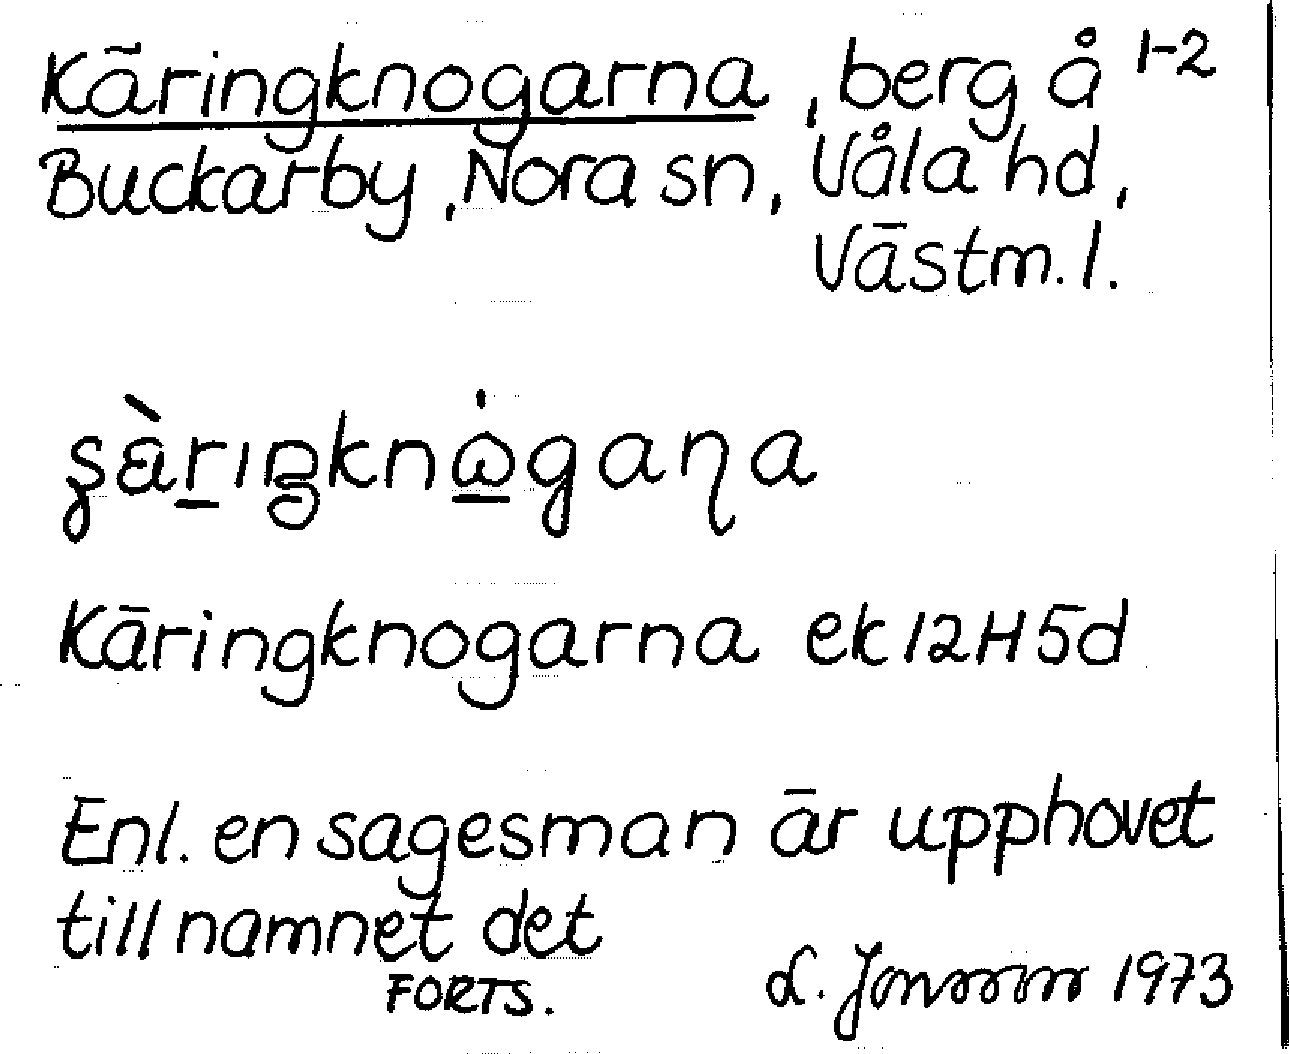 Käringknogarna, berg å 1-2
Buckarby, Nora sn, Våla hd,
Västm. l.
Käringknogarna ek 12H5d
Enl. en sagesman är upphovet
till namnet det
FORTS.
L. Jonsson 1973